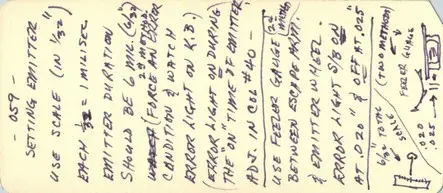 - 059 -
SETTING EMITTER
USE SCALE (IN 1/32")
EACH 1/32 = 1 MILISEC.
EMITTER DURATION
SHOULD BE 6 MIL. (6/32)
2ND METHOD
(FORCE AN ERROR
CONDITION & WATCH
ERROR LIGHT ON K.B.)
(ERROR LIGHT ON DURING
THE "ON TIME OF EMITTER
ADJ. IN COL #40 -
USE FEELER GAUGE (2nd METHOD)
BETWEEN ESCAPE ARM.
& EMITTER WHEEL.
ERROR LIGHT S/B ON
AT .020" & OFF AT .025"
6/32" TOTAL (TWO METHOD)
SCALE & FEELER GUAGE
.020
.025